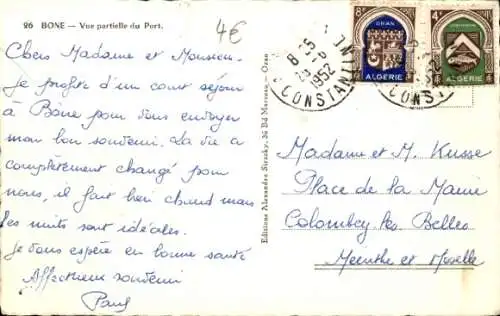 26 BONE — Vue partielle du Port.
4€
Chers Madame et Monsieur.
Je profite d'un court séjour
à Bône pour vous envoyer
mon bon souvenir. La vie a
complètement changé pour
nous, il fait bien chaud mais
les nuits sont idéales.
Je vous espère en bonne santé
Affectueux souvenir
Paul
Editions Alexandre Sirecky, 36 Bd Marceau, - Oran
8f
ORAN
ALGÉRIE
4f
ALGÉRIE
1952
CONSTANTINE
1952
CONSTANTINE
Madame et M. Kusse
Place de la Mairie
Colombey les Belles
Meurthe et Moselle